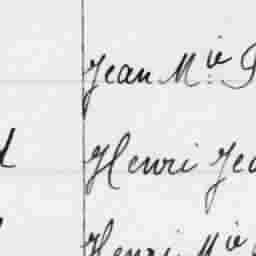 Jean Mie
Henri Jea
Henri Mie